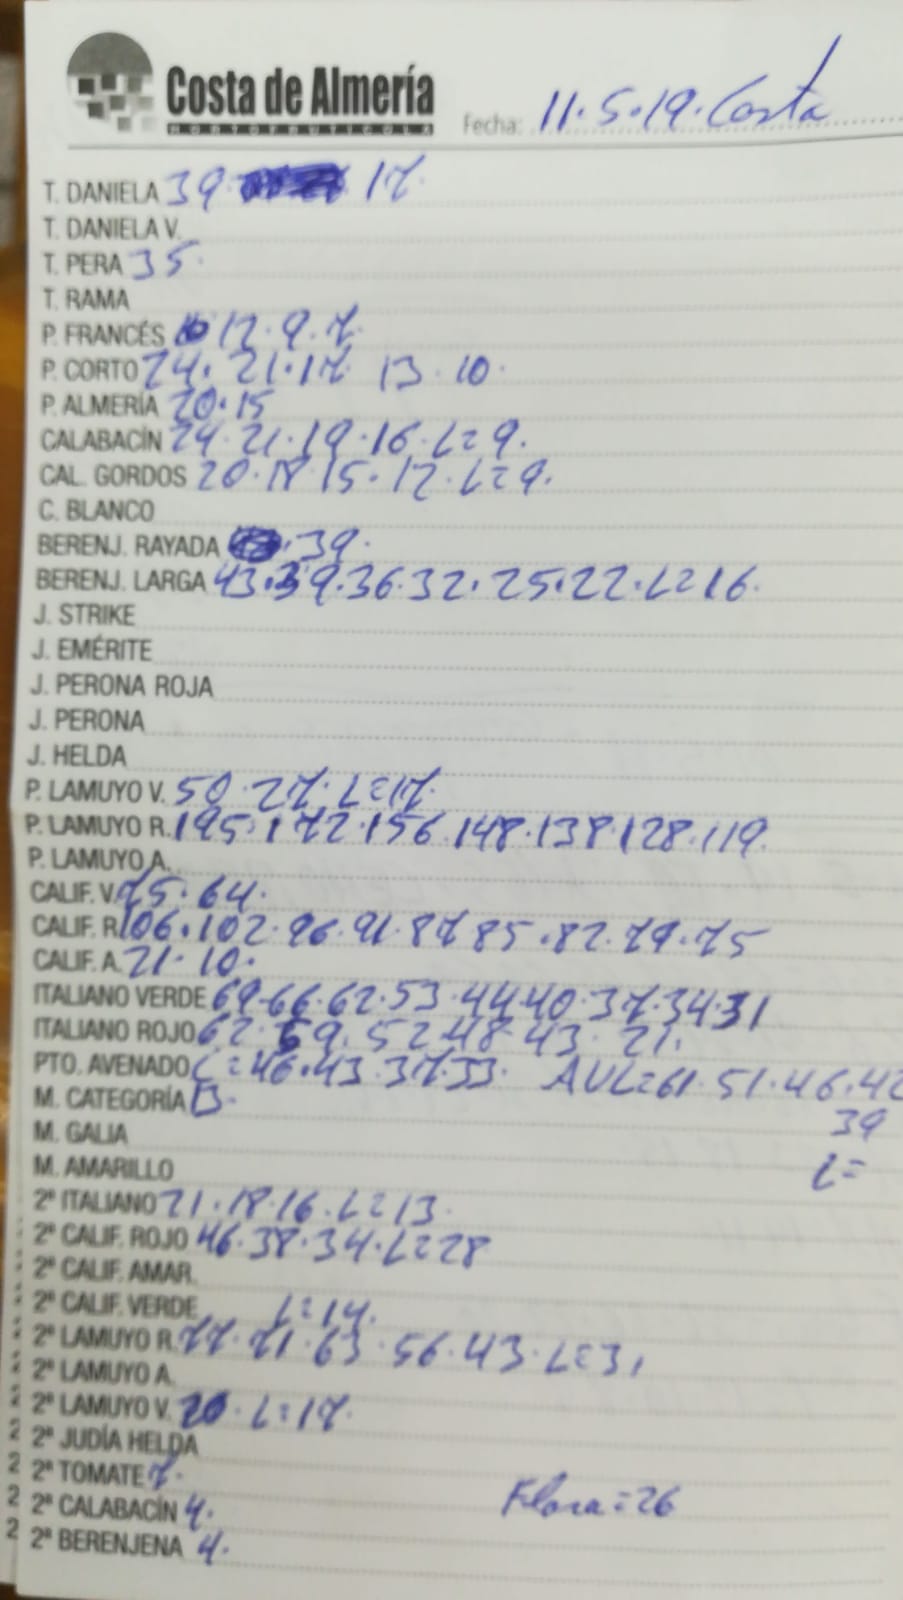 Costa de Almería
HORTOFRUTICOLA
Fecha: 11.5.19. Costa
T. DANIELA 39 17.
T. DANIELA V.
T. PERA 35.
T. RAMA
P. FRANCÉS 12.9.7.
P. CORTO 24. 21.17 13.10.
P. ALMERÍA 20.15
CALABACÍN 24.21.19.16.L=9.
CAL. GORDOS 20.18 15.12.L=9.
C. BLANCO
BERENJ. RAYADA .39.
BERENJ. LARGA 43.39.36.32.25.22.L=16.
J. STRIKE
J. EMÉRITE
J. PERONA ROJA
J. PERONA
J. HELDA
P. LAMUYO V. 50.27.L=17.
P. LAMUYO R. 195.172.156.148.138.128.119.
P. LAMUYO A.
CALIF. V. 75.64.
CALIF. R. 106.102.96.91.87 85.82.79.75
CALIF. A. 21.10.
ITALIANO VERDE 69.66.62.53.44.40.37.34.31
ITALIANO ROJO 62.59.52.48.43.21.
PTO. AVENADO L=46.43.37.33. AUL=61.51.46.42
M. CATEGORÍA B.
39
M. GALIA
M. AMARILLO
L=
2ª ITALIANO 21.18.16.L=13.
2ª CALIF. ROJO 46.38.34.L=28
2ª CALIF. AMAR.
2ª CALIF. VERDE L=14.
2ª LAMUYO R. 77.71.63.56.43.L=31
2ª LAMUYO A.
2ª LAMUYO V. 20.L=17.
2ª JUDÍA HELDA
2ª TOMATE 7.
2ª CALABACÍN 4. Flora=26
2ª BERENJENA 4.